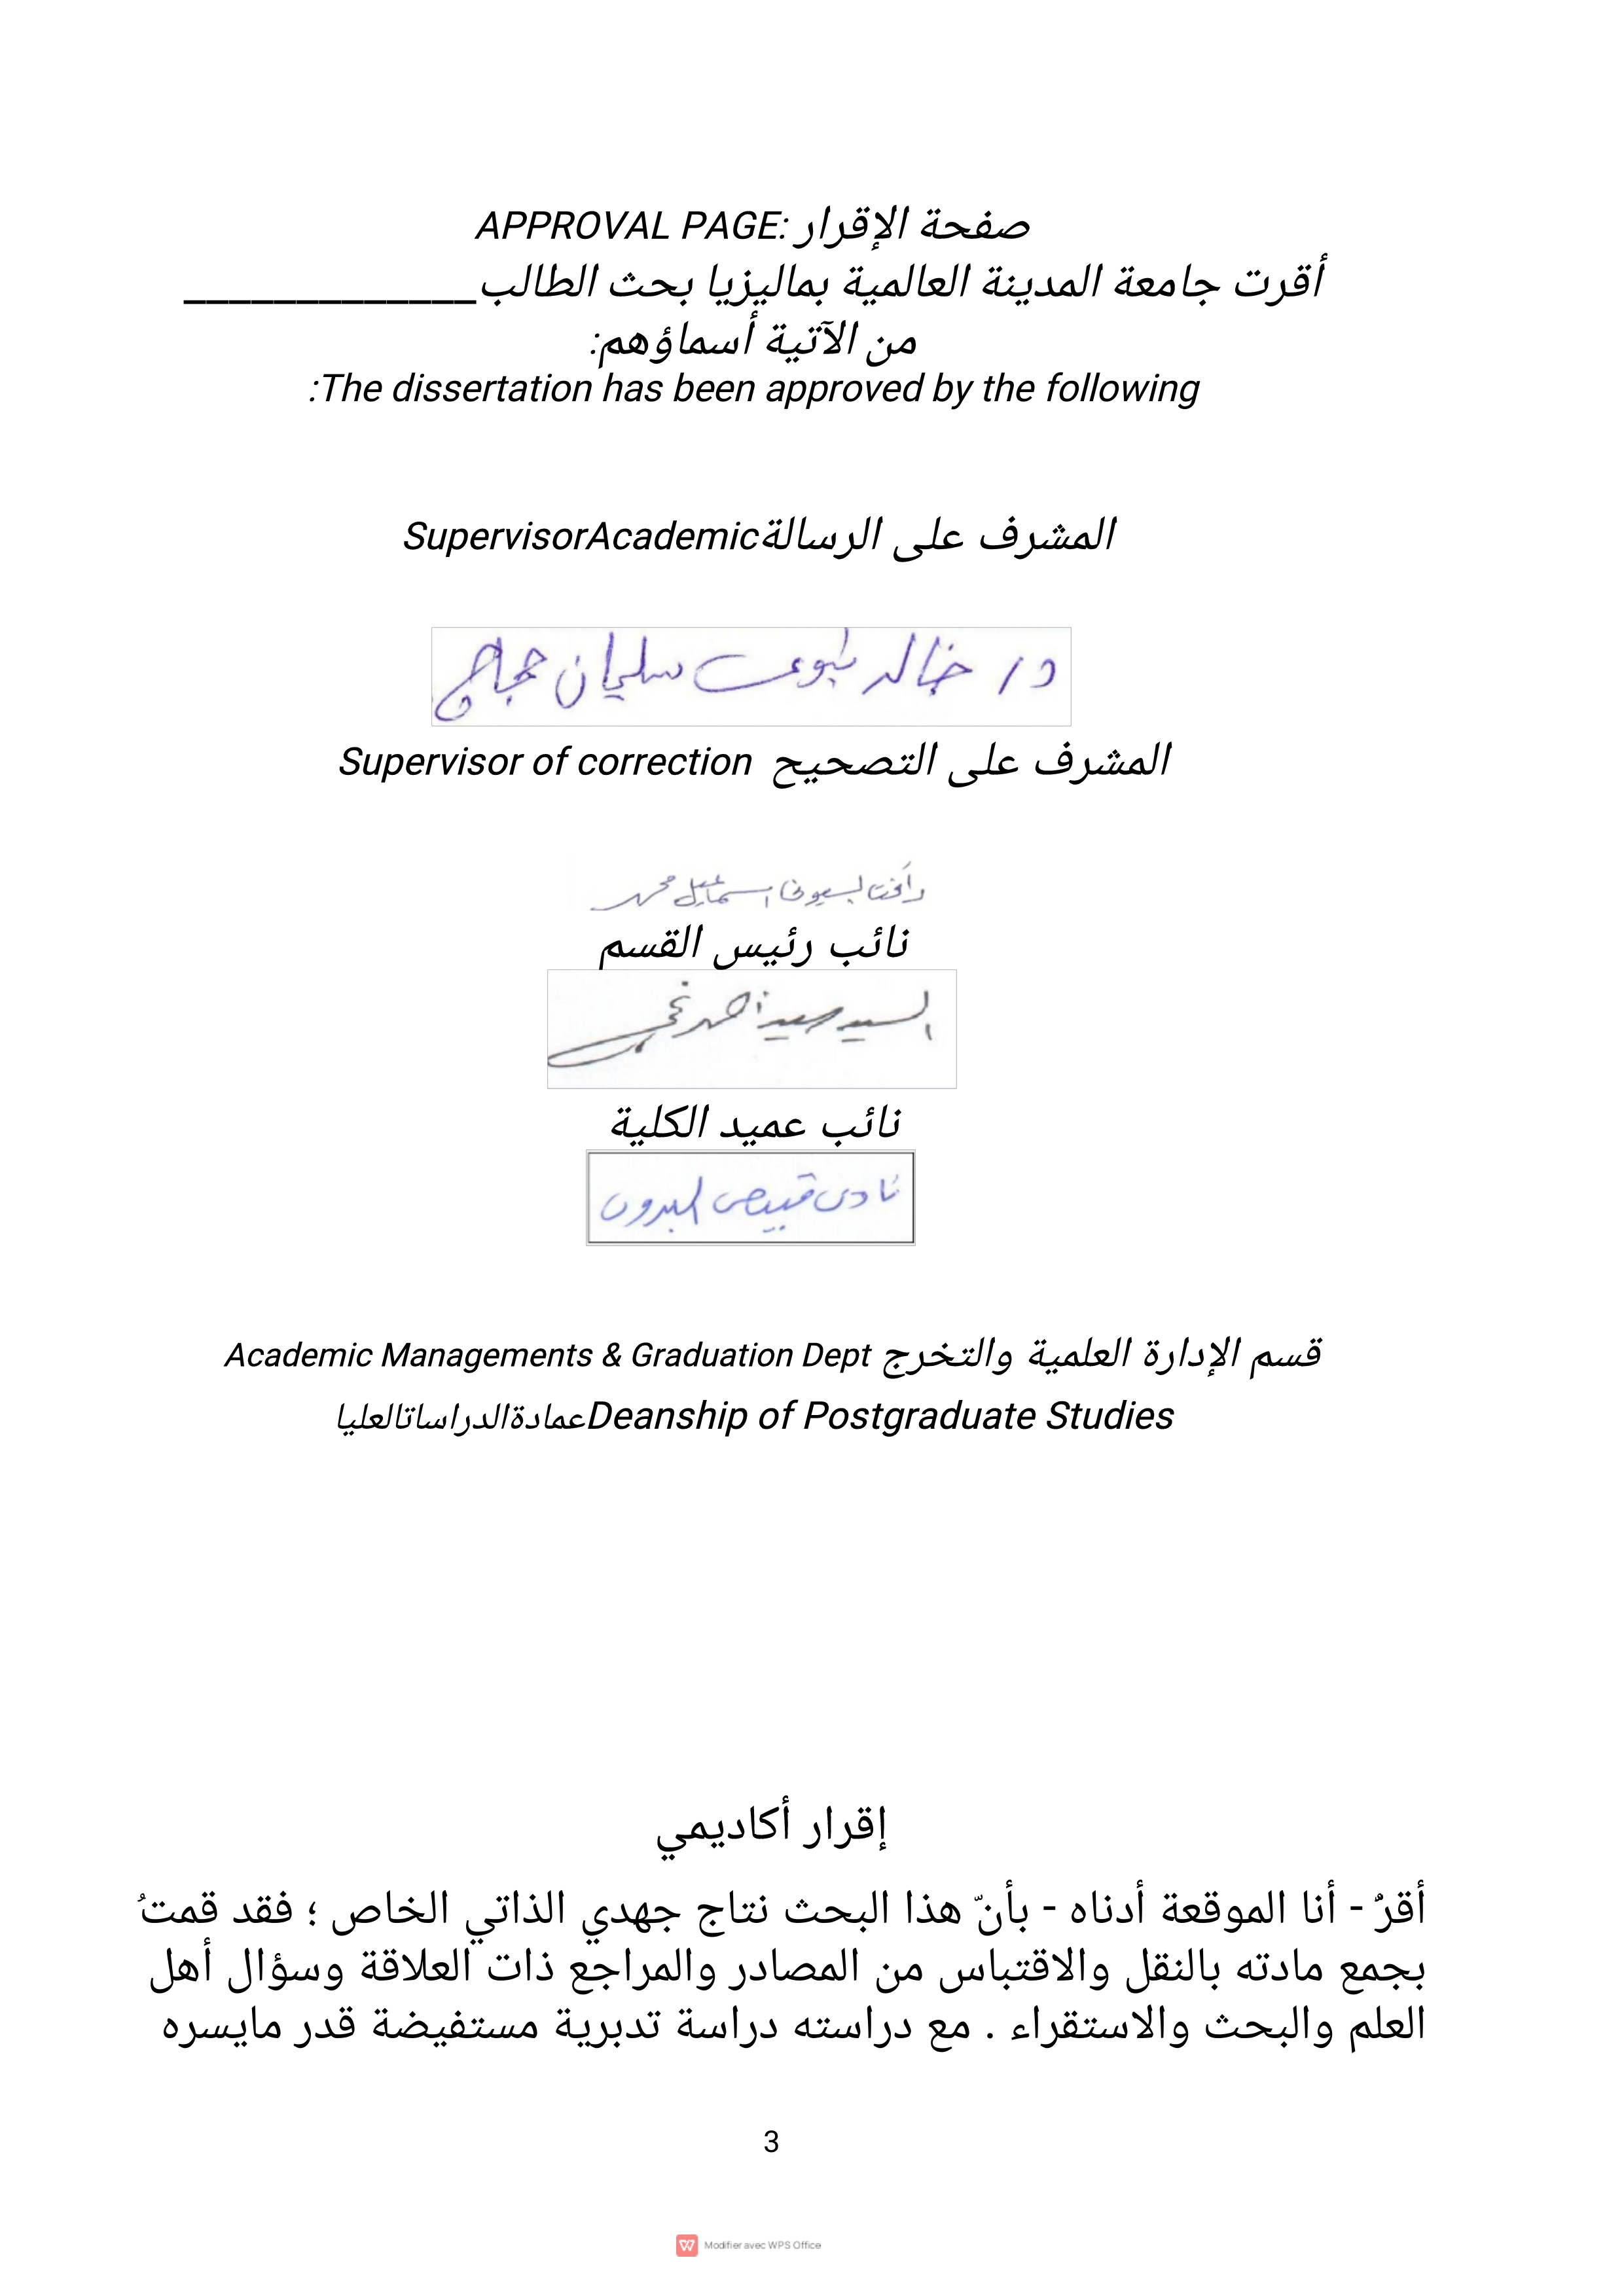 صفحة الإقرار :APPROVAL PAGE
أقرت جامعة المدينة العالمية بماليزيا بحث الطالب_____________
من الآتية أسماؤهم:
The dissertation has been approved by the following:
المشرف على الرسالةSupervisorAcademic
د/ خالد نبوي سليمان حجاج
المشرف على التصحيح Supervisor of correction
رأفت بسيوني إسماعيل محمد
نائب رئيس القسم
السيد سيد أحمد نجم
نائب عميد الكلية
نادى قبيصى البدوى
قسم الإدارة العلمية والتخرج Academic Managements & Graduation Dept
Deanship of Postgraduate Studiesعمادةالدراساتالعليا
إقرار أكاديمي
أقرُّ - أنا الموقعة أدناه - بأنّ هذا البحث نتاج جهدي الذاتي الخاص ؛ فقد قمتُ
بجمع مادته بالنقل والاقتباس من المصادر والمراجع ذات العلاقة وسؤال أهل
العلم والبحث والاستقراء . مع دراسته دراسة تدبرية مستفيضة قدر مايسره
3
Modifier avec WPS Office